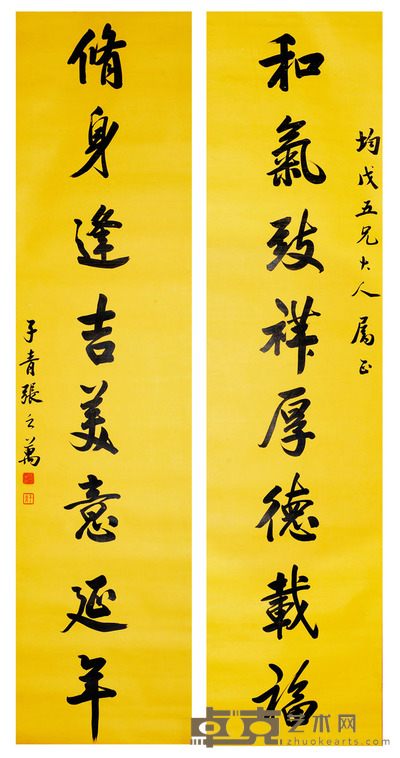 均戊五兄大人属正
和氣致祥厚德載福
脩身逢吉美意延年
子青張之萬
卓克艺术网
zhuokearts.com